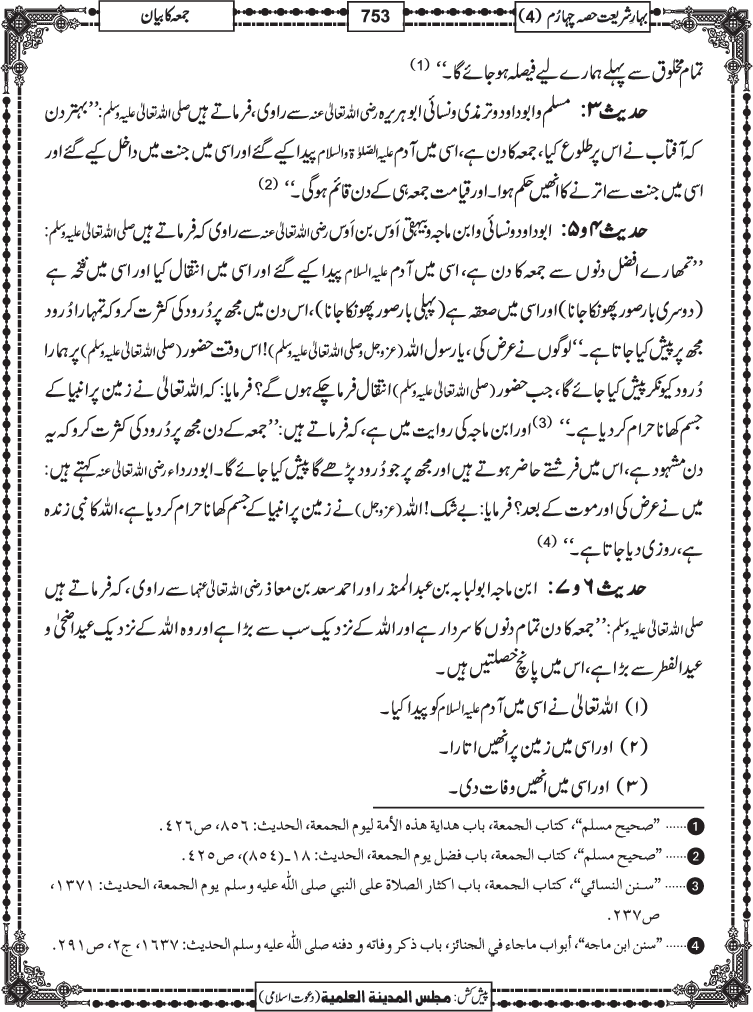 بہارِ شریعت حصہ چہارم (4)
753
جمعہ کا بیان
تمام مخلوق سے پہلے ہمارے لیے فیصلہ ہو جائے گا۔‘‘ (1)
حدیث ۳: مسلم و ابو داود و ترمذی و نسائی ابوہریرہ رضی اللہ تعالیٰ عنہ سے راوی، فرماتے ہیں صلی اللہ تعالیٰ علیہ وسلم: ’’بہتر دن
کہ آفتاب نے اس پر طلوع کیا، جمعہ کا دن ہے، اسی میں آدم علیہ الصلوٰۃ والسلام پیدا کیے گئے اور اسی میں جنت میں داخل کیے گئے اور
اسی میں جنت سے اترنے کا انھیں حکم ہوا۔ اور قیامت جمعہ ہی کے دن قائم ہوگی۔‘‘ (2)
حدیث ۴ و ۵: ابو داود و نسائی و ابن ماجہ و بیہقی اَوس بن اَوس رضی اللہ تعالیٰ عنہ سے راوی کہ فرماتے ہیں صلی اللہ تعالیٰ علیہ وسلم:
’’تمھارے افضل دنوں سے جمعہ کا دن ہے، اسی میں آدم علیہ السلام پیدا کیے گئے اور اسی میں انتقال کیا اور اسی میں نفخہ ہے
(دوسری بار صور پھونکا جانا) اور اسی میں صعقہ ہے (پہلی بار صور پھونکا جانا)، اس دن میں مجھ پر دُرود کی کثرت کرو کہ تمہارا دُرود
مجھ پر پیش کیا جاتا ہے۔‘‘ لوگوں نے عرض کی، یا رسول اللہ (عزوجل وصلی اللہ تعالیٰ علیہ وسلم)! اس وقت حضور (صلی اللہ تعالیٰ علیہ وسلم) پر ہمارا
دُرود کیونکر پیش کیا جائے گا، جب حضور (صلی اللہ تعالیٰ علیہ وسلم) انتقال فرما چکے ہوں گے؟ فرمایا: کہ اللہ تعالیٰ نے زمین پر انبیا کے
جسم کھانا حرام کر دیا ہے۔‘‘ (3) اور ابن ماجہ کی روایت میں ہے، کہ فرماتے ہیں: ’’جمعہ کے دن مجھ پر دُرود کی کثرت کرو کہ یہ
دن مشہود ہے، اس میں فرشتے حاضر ہوتے ہیں اور مجھ پر جو دُرود پڑھے گا پیش کیا جائے گا۔ ابودرداء رضی اللہ تعالیٰ عنہ کہتے ہیں:
میں نے عرض کی اور موت کے بعد؟ فرمایا: بے شک! اللہ (عزوجل) نے زمین پر انبیا کے جسم کھانا حرام کر دیا ہے، اللہ کا نبی زندہ
ہے، روزی دیا جاتا ہے۔‘‘ (4)
حدیث ۶ و ۷: ابن ماجہ ابولبابہ بن عبدالمنذر اور احمد سعد بن معاذ رضی اللہ تعالیٰ عنہما سے راوی، کہ فرماتے ہیں
صلی اللہ تعالیٰ علیہ وسلم: ’’جمعہ کا دن تمام دنوں کا سردار ہے اور اللہ کے نزدیک سب سے بڑا ہے اور وہ اللہ کے نزدیک عیداضحیٰ و
عیدالفطر سے بڑا ہے، اس میں پانچ خصلتیں ہیں۔
(۱) اللہ تعالیٰ نے اسی میں آدم علیہ السلام کو پیدا کیا۔
(۲) اور اسی میں زمین پر انھیں اتارا۔
(۳) اور اسی میں انھیں وفات دی۔
1 ...... ’’صحيح مسلم‘‘، كتاب الجمعة، باب هداية هذه الأمة ليوم الجمعة، الحديث: ٨٥٦، ص٤٢٦.
2 ...... ’’صحيح مسلم‘‘، كتاب الجمعة، باب فضل يوم الجمعة، الحديث: ١٨ـ(٨٥٤)، ص٤٢٥.
3 ...... ’’سنن النسائي‘‘، كتاب الجمعة، باب اكثار الصلاة على النبي صلى الله عليه وسلم يوم الجمعة، الحديث: ١٣٧١،
ص٢٣٧.
4 ...... ’’سنن ابن ماجه‘‘، أبواب ماجاء في الجنائز، باب ذكر وفاته و دفنه صلى الله عليه وسلم الحديث: ١٦٣٧، ج٢، ص٢٩١.
پیش کش: مجلس المدینة العلمیة (دعوتِ اسلامی)